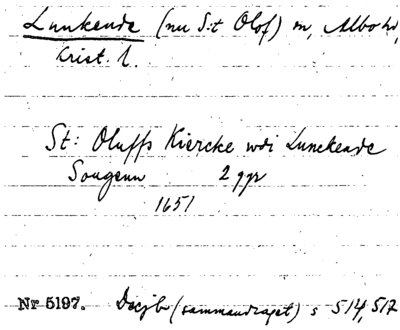 Lunkende (nu S:t Olof) sn, Albo hd,
Krist. l.
St: Oluffs Kiercke wdi Lunckende
Sougenn 2 ggr
1651
Nr 5197. Decjb (sammandraget) s 514, 517